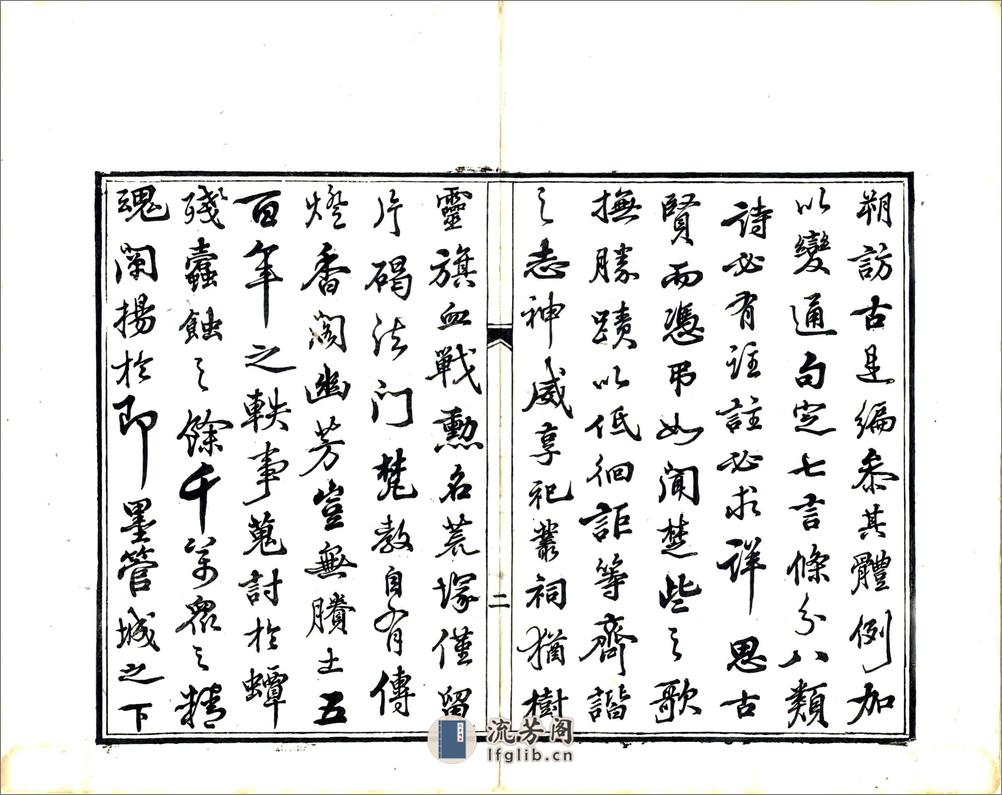 朔訪古是編參其體例加
以變通句定七言條分八類
詩必有註註必求詳思古
賢而憑弔如聞楚些之歌
撫勝蹟以低徊詎等齊諧
之志神威享祀叢祠猶樹
二
靈旗血戰勳名荒塚僅留
片碣法門梵教自有傳
燈香閣幽芳豈無賸土五
百年之軼事蒐討於蟫
殘蠹蝕之餘千萬衆之精
魂闡揚於即墨管城之下
流芳阁
lfglib.cn